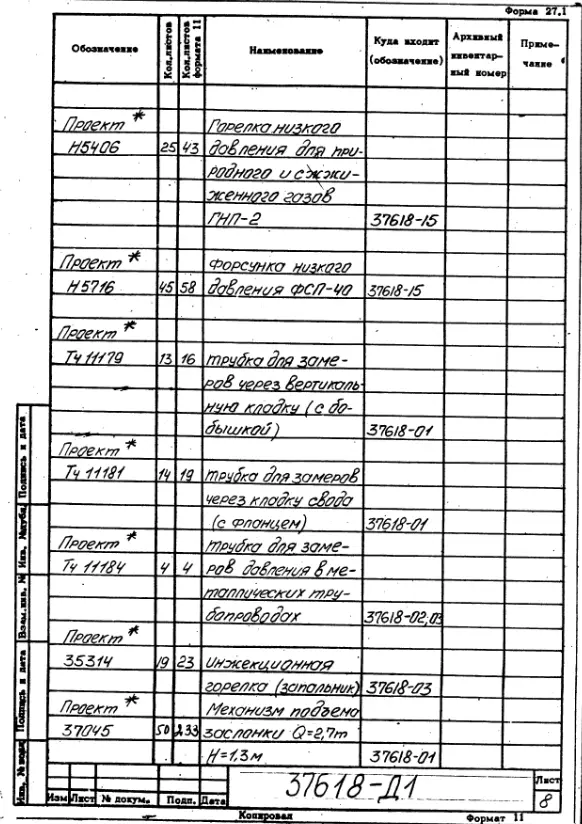 Форма 27.1
Обозначение Кол.листов Кол.листов формата 11 Наименование Куда входит (обозначение) Архивный инвентар-ный номер Приме-чание
Проект * Горелка низкого
Н5406 25 43 давления для при-
родного и сжи-
женного газов
ГНП-2 37618-15
Проект * Форсунка низкого
Н5716 45 58 давления ФСП-40 37618-15
Проект *
Тч 11179 13 16 трубка для заме-
ров через вертикаль-
ную кладку (с бо-
бышкой) 37618-01
Проект *
Тч 11181 14 19 трубка для замеров
через кладку свода
(с фланцем) 37618-01
Проект * трубка для заме-
Тч 11184 4 4 ров давления в ме-
таллических тру-
бопроводах 37618-02,03
Проект *
35314 19 23 инжекционная
горелка (запальник) 37618-03
Проект * Механизм подъема
37045 50 233 заслонки Q=2,7т
Н=1,3м 37618-01
37618-Д1
Лист
8
Изм Лист № докум. Подп. Дата
Копировал Формат 11
Инв. № подл. Подпись и дата Взам. инв. № Инв. № дубл. Подпись и дата